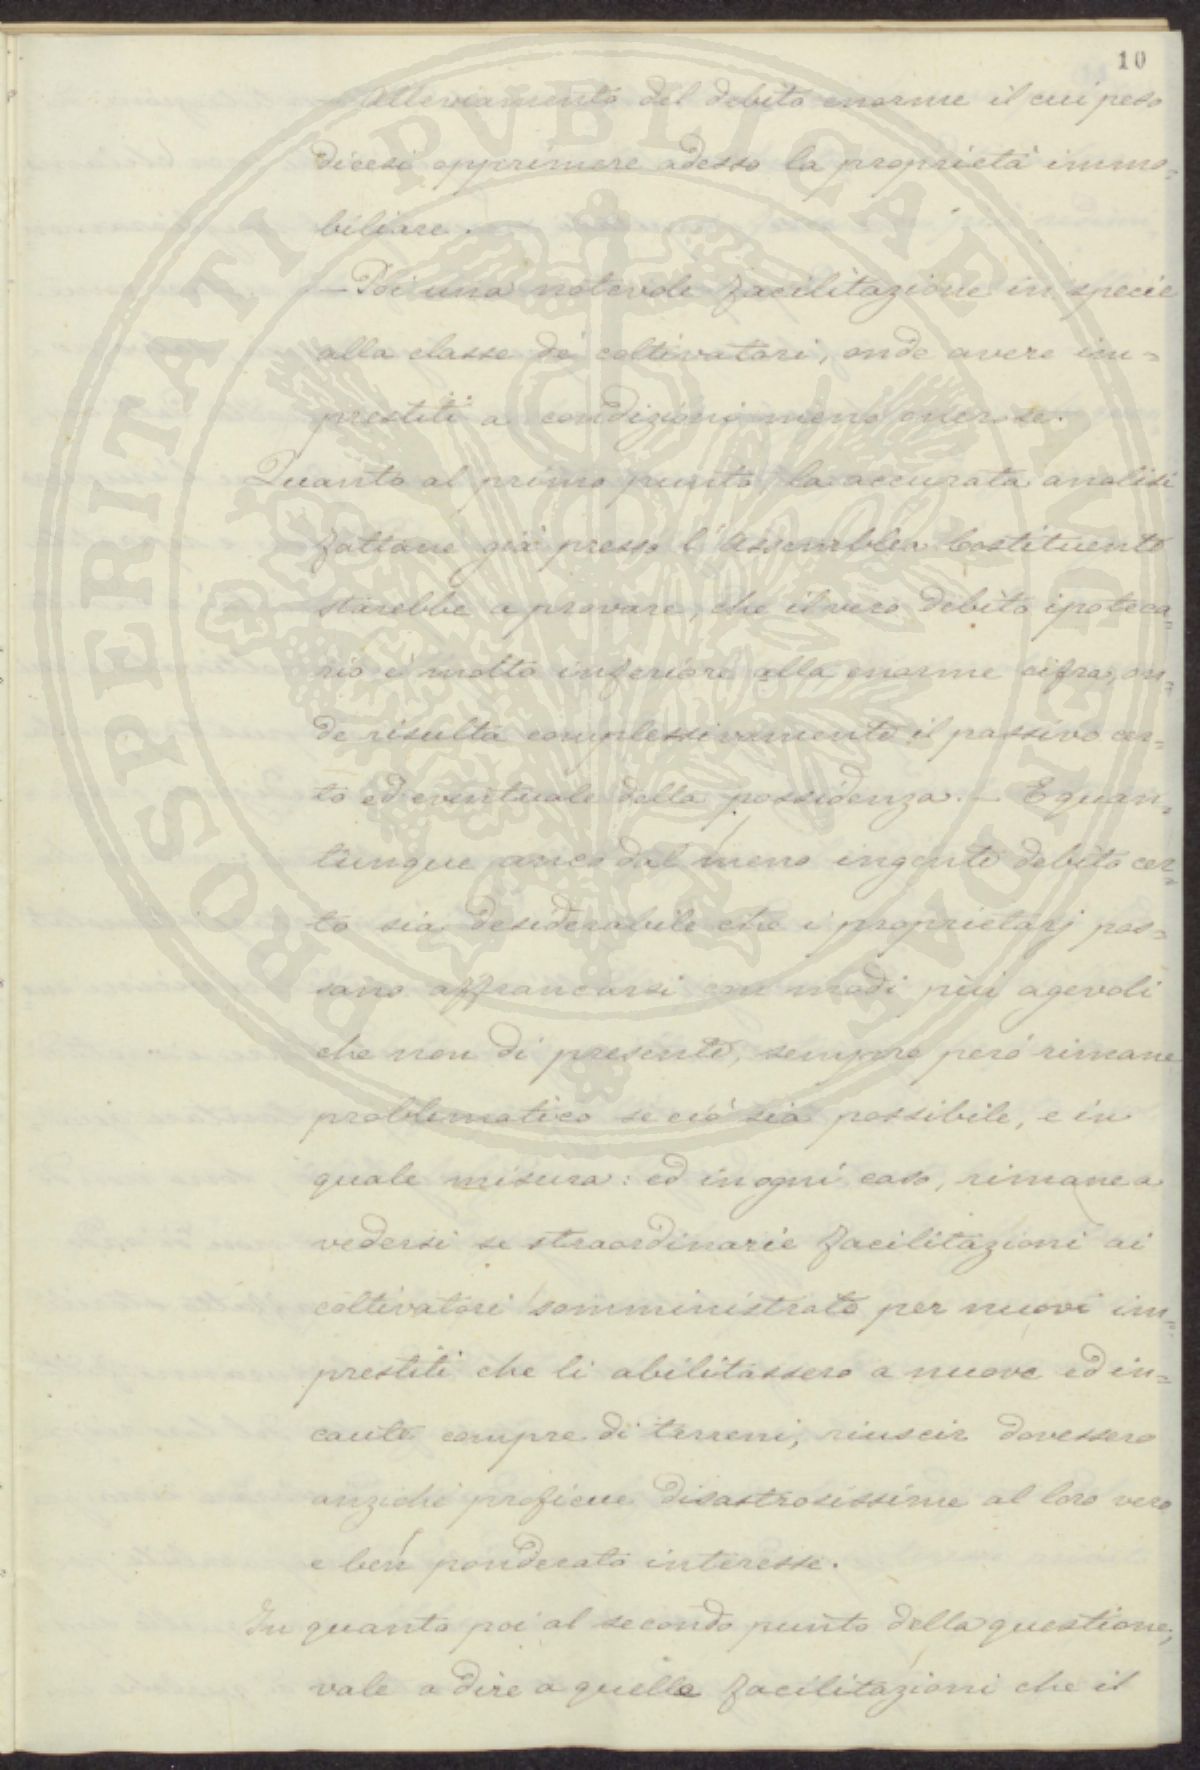 10
— Alleviamento del debito enorme il cui peso
dicesi opprimere adesso la proprietà immo=
biliare.
— Poi una notevole facilitazione in specie
alla classe de' coltivatori, onde avere im=
prestiti a condizioni meno onerose.
Quanto al primo punto, la accurata analisi
fattane già presso l'Assemblea Costituente
starebbe a provare, che il vero debito ipoteca=
rio è molto inferiore alla enorme cifra, on=
de risulta complessivamente il passivo cer=
to ed eventuale della possidenza. — E quan=
tunque anco dal meno ingente debito cer=
to sia desiderabile che i proprietarj pos=
sano affrancarsi con modi più agevoli
che non di presente, sempre però rimane
problematico se ciò sia possibile, e in
quale misura: ed in ogni caso, rimane a
vedersi se straordinarie facilitazioni ai
coltivatori somministrate per nuovi im=
prestiti che li abilitassero a nuove ed in=
caute compre di terreni, riuscir dovessero
anziché proficue disastrosissime al loro vero
e ben ponderato interesse.
In quanto poi al secondo punto della questione,
vale a dire a quelle facilitazioni che il
PROSPERITATI PVBLICAE AVGENDAE